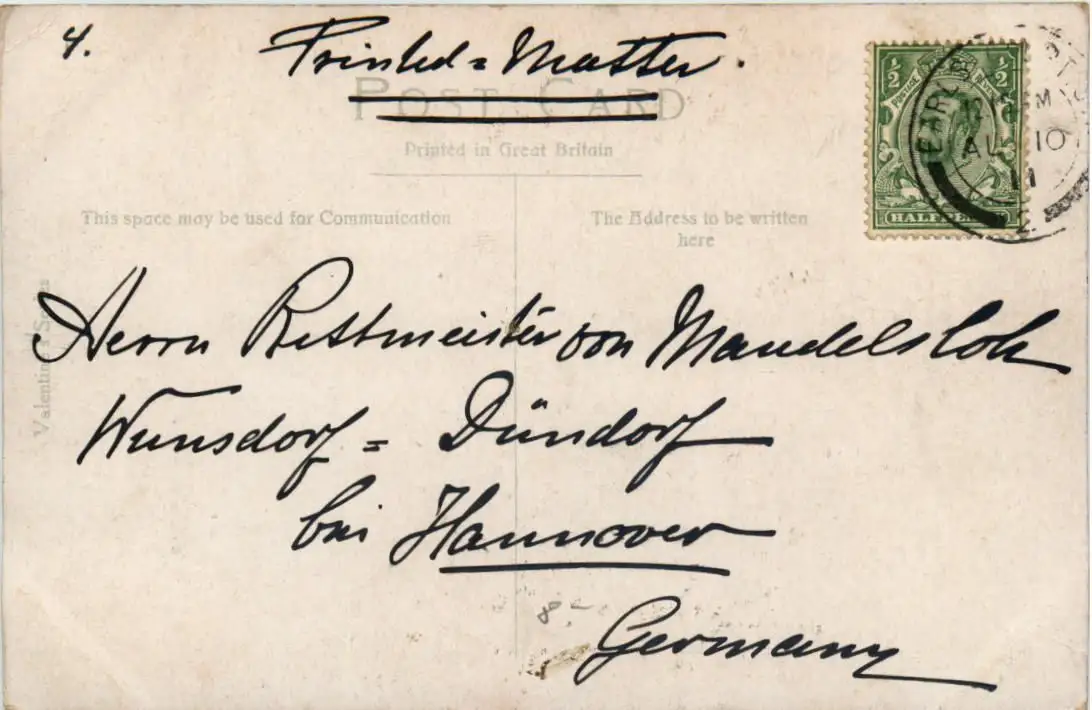 4.
Printed = Matter.
POST CARD
Printed in Great Britain
This space may be used for Communication
The Address to be written
here
½ ½
POSTAGE
HALFPENNY
AU 10
11
Valentine's Series
Herrn Rittmeister von Mandelsloh
Wunsdorf = Dündorf
bei Hannover
Germany